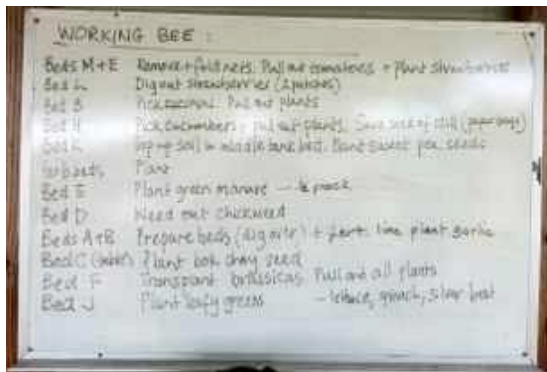 WORKING BEE:
Beds M+E Remove + fold nets. Pull out tomatoes + plant strawberries
Bed L Dig out strawberries (2 patches)
Bed B Pick Pull out plants
Bed H Pick cucumbers, pull out plants. Save seed of dill (paper bags)
Bed soil in middle bed. Plant sweet pea seeds
Plant
Bed E Plant green manure - pack
Bed D Weed out chickweed
Beds A+B Prepare beds (dig over) + fert. lime plant garlic
Bed C Plant bok choy seed
Bed F Transplant brassicas Pull out all plants
Bed J Plant leafy greens - lettuce, spinach, silver beet